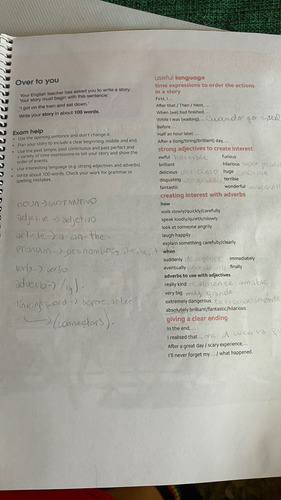 Over to you
Your English teacher has asked you to write a story.
Your story must begin with this sentence:
'I got on the train and sat down.'
Write your story in about 100 words.
Exam help
• Use the opening sentence and don't change it.
• Plan your story to include a clear beginning, middle and end.
• Use the past simple, past continuous and past perfect and
a variety of time expressions to tell your story and show the
order of events.
• Use interesting language (e.g. strong adjectives and adverbs).
• Write about 100 words. Check your work for grammar or
spelling mistakes.
adjective → adjetivo
article → a-an-the
verb → verbo
adverb → /ly/
(connectors)
useful language
time expressions to order the actions
in a story
First, I …
After that / Then / Next, …
When (we) had finished, …
While I was (reading), … Cuando
Before …
Half an hour later, …
After a (long/tiring/brilliant) day, …
strong adjectives to create interest
awful
furious
brilliant
hilarious
delicious
huge
disgusting
terrible
fantastic
wonderful
creating interest with adverbs
how
walk slowly/quickly/carefully
speak loudly/quietly/slowly
look at someone angrily
laugh happily
explain something carefully/clearly
when
suddenly
immediately
eventually
finally
adverbs to use with adjectives
really kind
very big muy grande
extremely dangerous
absolutely brilliant/fantastic/hilarious
giving a clear ending
In the end, …
I realised that …
After a great day / scary experience, …
I'll never forget my … / what happened.